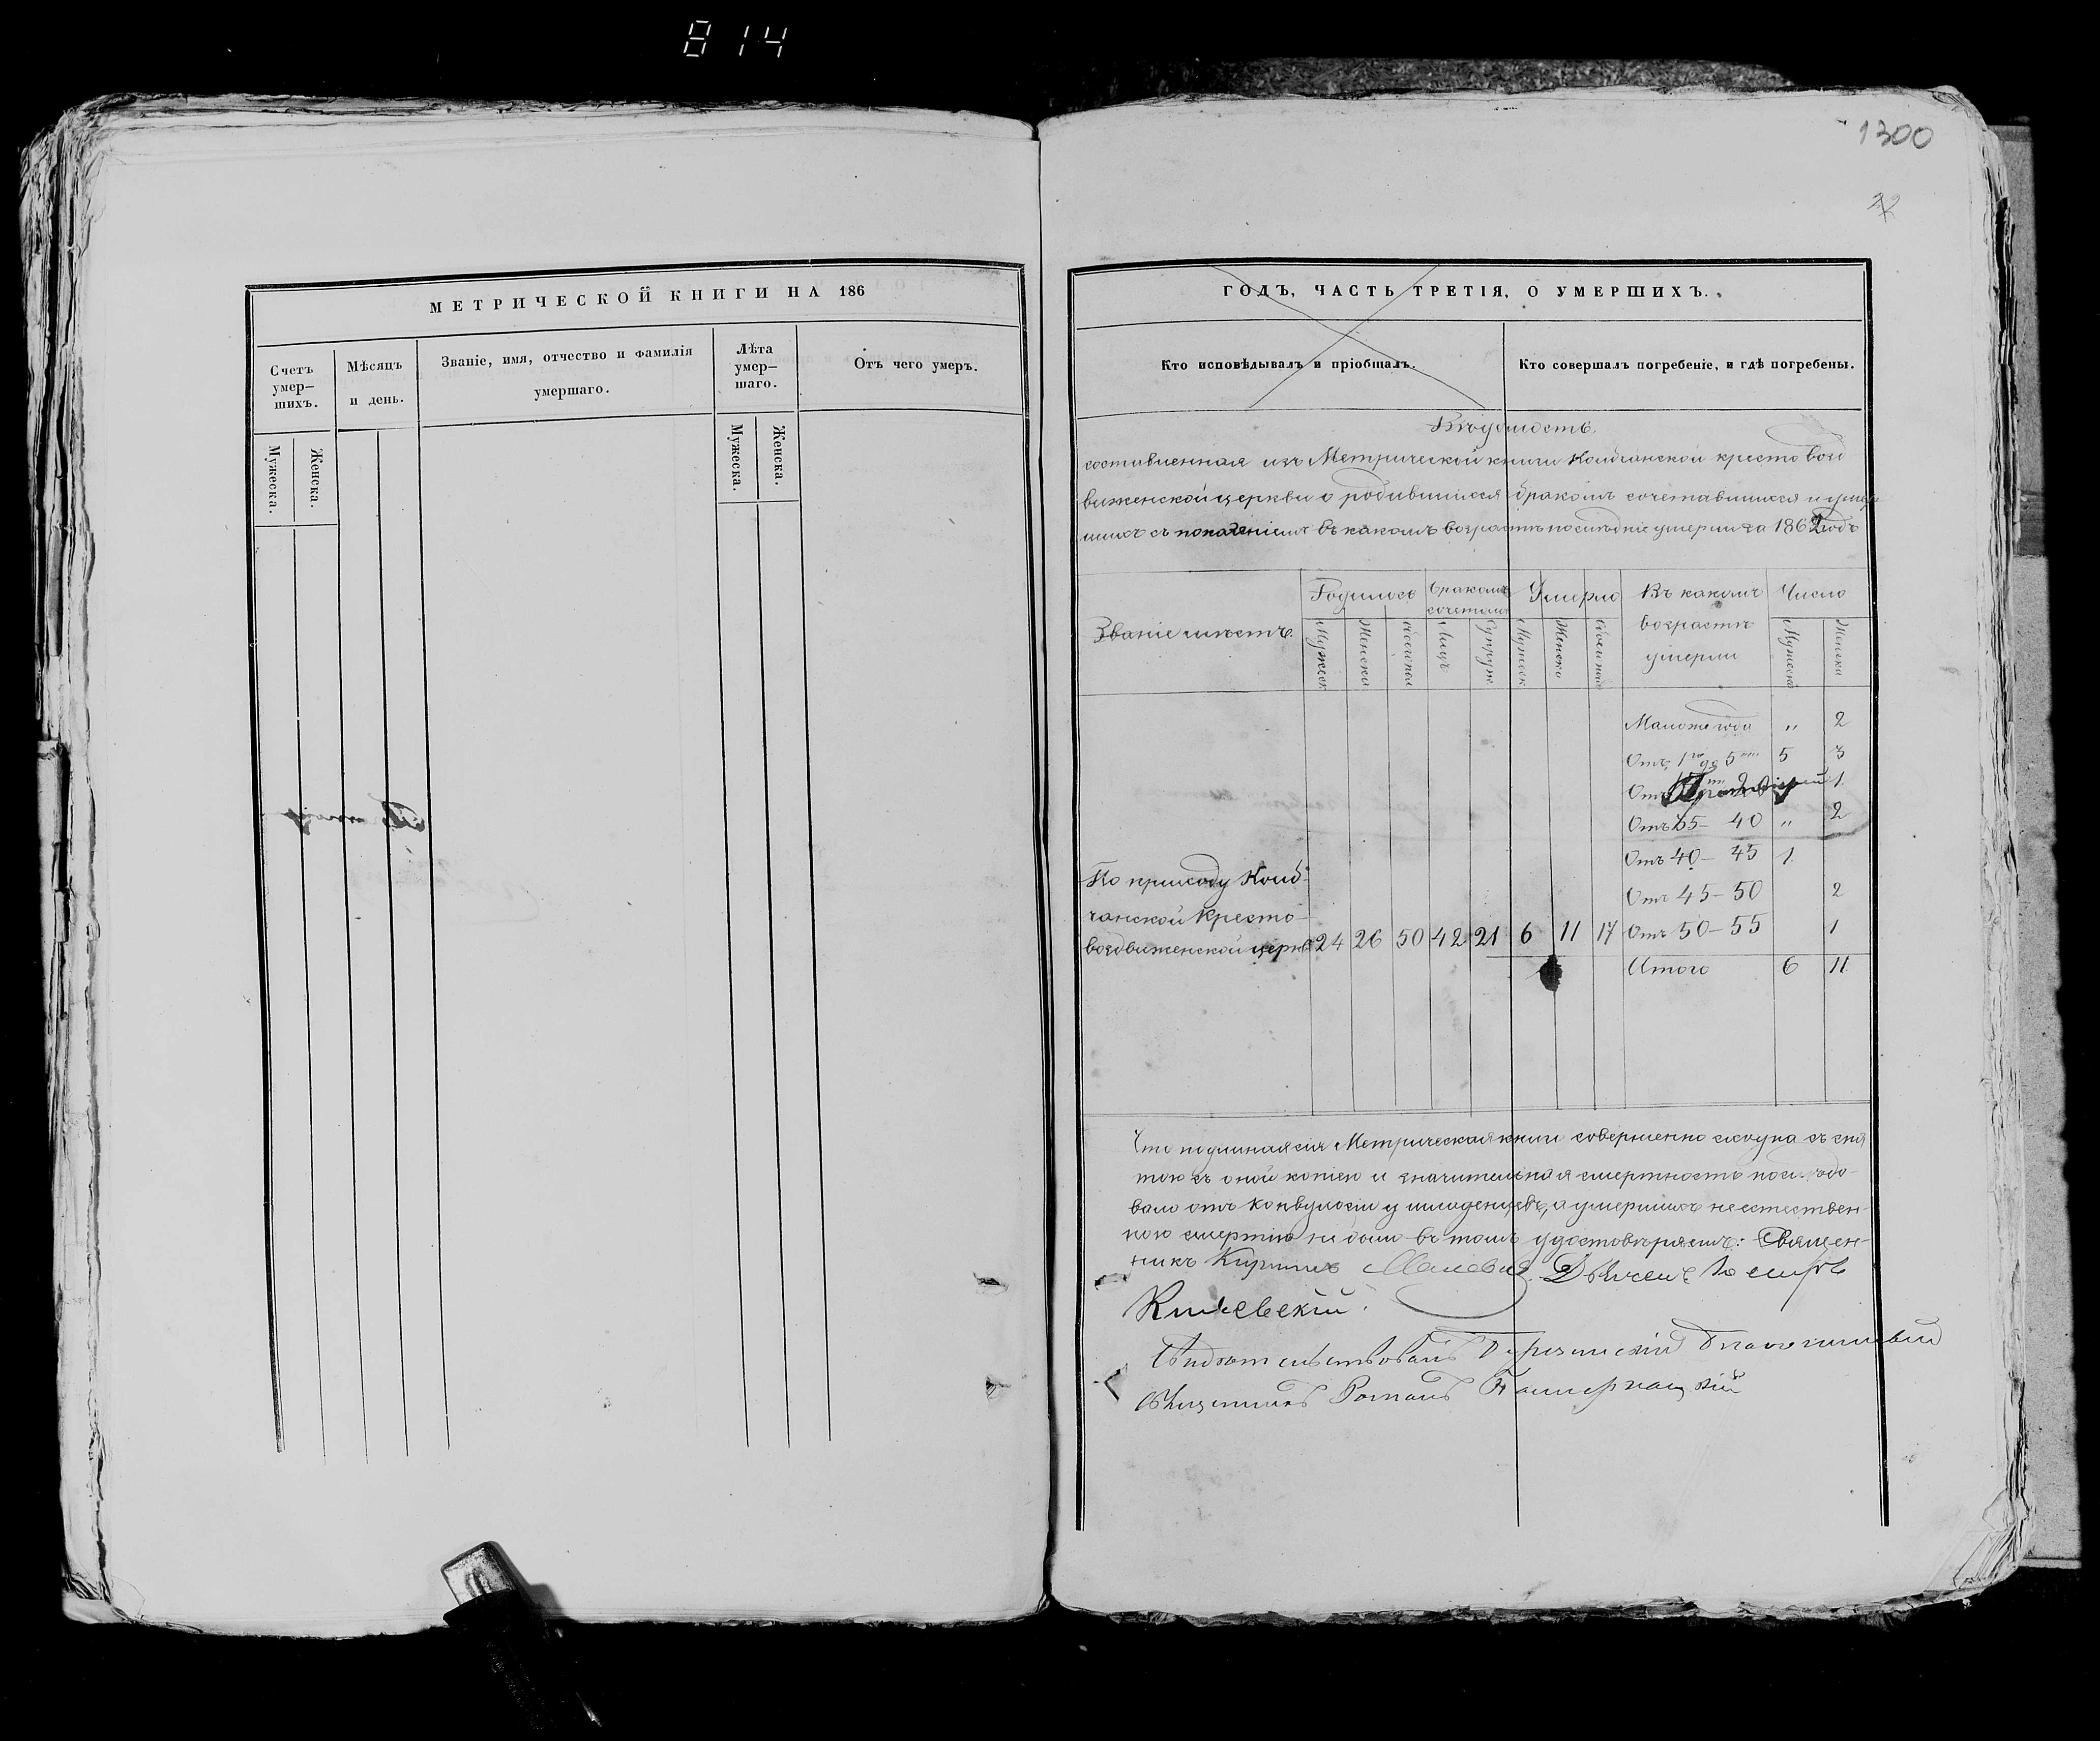 814
1300
22
МЕТРИЧЕСКОЙ КНИГИ НА 186
Счетъ умер–шихъ.
Мѣсяцъ и день.
Званіе, имя, отчество и фамилія умершаго.
Лѣта умер–шаго.
Отъ чего умеръ.
Мужеска.
Женска.
Мужеска.
Женска.
ГОДЪ, ЧАСТЬ ТРЕТІЯ, О УМЕРШИХЪ.
Кто исповѣдывалъ и пріобщалъ.
Кто совершалъ погребеніе, и гдѣ погребены.
Вѣдомость
составленная изъ Метрической книги Колбчанской кресто воз
виженской церкви о родившихся бракомъ сочетавшихся и умер
шихъ съ показаніемъ въ какомъ возрастѣ послѣдніе умерли за 1862 годъ
Званіе мѣстъ.
Родилось
Бракомъ
сочетал
Умерло
Въ какомъ
возрастѣ
умерли
Число
Мужеск
Женска
Обоего пола
Лицъ
Супруж
Мужеск
Женска
Обоего пола
Мужеска
Женска
Маложе года " 2
Отъ 1 го до 5 5 3
Отъ 1
Отъ 35– 40 " 2
Отъ 40– 45 1
Отъ 45– 50 2
Отъ 50– 55 1
Итого 6 11
По приходу Колб–
чанской Кресто–
воздвиженской церкв 24 26 50 42 21 6 11 17
Что подлинная сія Метрическая книги совершенно сходна съ сня
тою съ оной копіею и значительная смертность послѣдо–
вала отъ конвулсіи у младенцевъ, а умершихъ неестествен–
ною смертію не было въ томъ удостовѣряемъ: Священ–
никъ Кириллъ
Свидѣтельствовалъ Благочинный
Священникъ Романъ